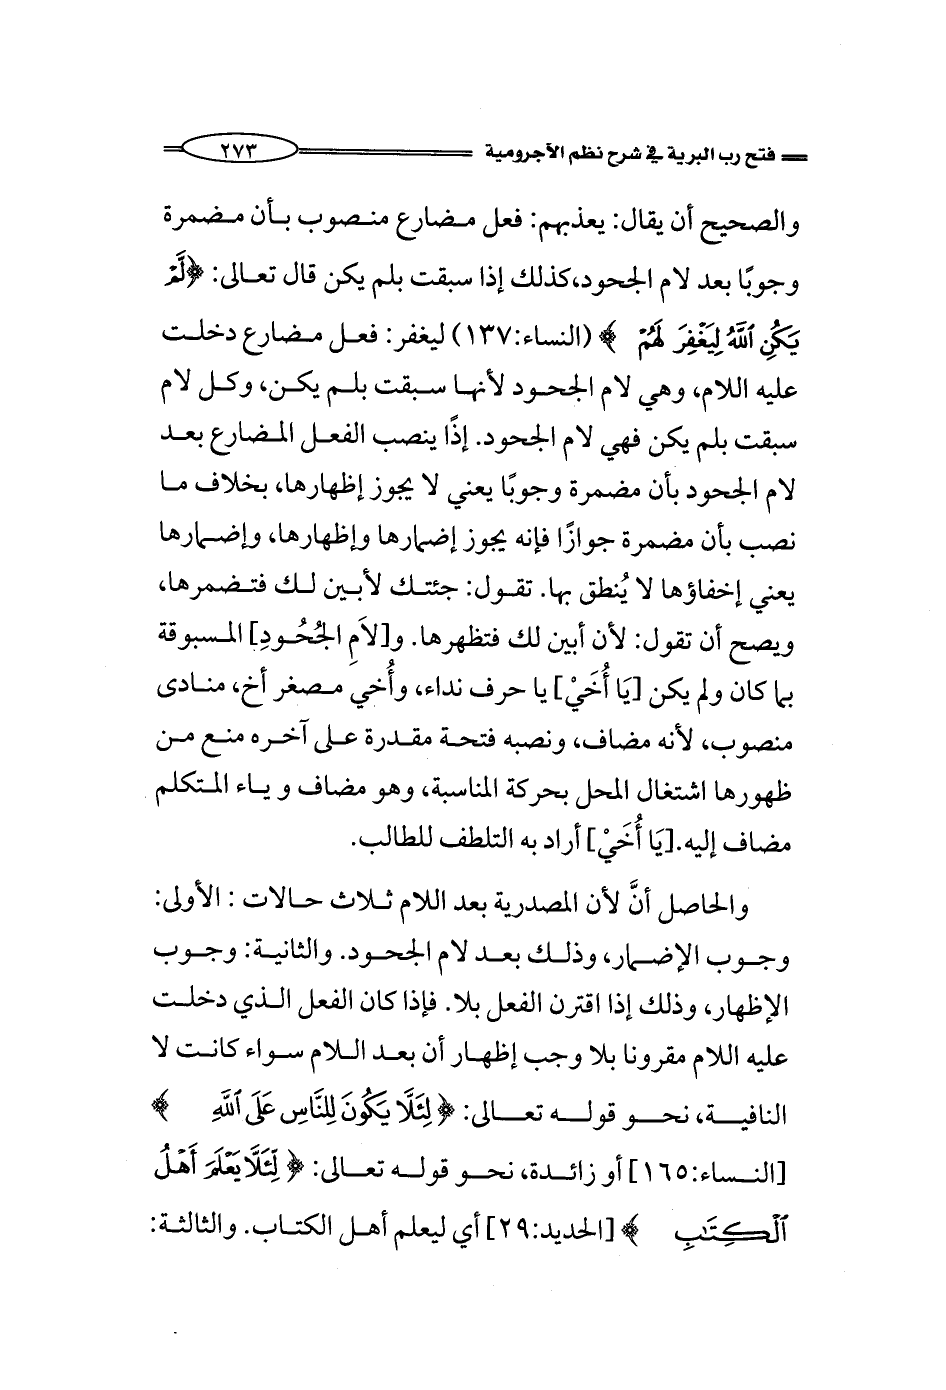 فتح رب البرية في شرح نظم الآجرومية ٢٧٣
والصحيح أن يقال: يعذبهم: فعل مضارع منصوب بأن مضمرة
وجوبًا بعد لام الجحود،كذلك إذا سبقت بلم يكن قال تعالى: ﴿لَّمْ
يَكُنِ ٱللَّهُ لِيَغْفِرَ لَهُمْ ﴾ (النساء:١٣٧) ليغفر: فعل مضارع دخلت
عليه اللام، وهي لام الجحود لأنها سبقت بلم يكن، وكل لام
سبقت بلم يكن فهي لام الجحود. إذًا ينصب الفعل المضارع بعد
لام الجحود بأن مضمرة وجوبًا يعني لا يجوز إظهارها، بخلاف ما
نصب بأن مضمرة جوازًا فإنه يجوز إضمارها وإظهارها، وإضمارها
يعني إخفاؤها لا يُنطق بها. تقول: جئتك لأبين لك فتضمرها،
ويصح أن تقول: لأن أبين لك فتظهرها. و[لاَمِ الجُحُودِ] المسبوقة
بما كان ولم يكن [يَا أُخَيْ] يا حرف نداء، وأُخي مصغر أخ، منادى
منصوب، لأنه مضاف، ونصبه فتحة مقدرة على آخره منع من
ظهورها اشتغال المحل بحركة المناسبة، وهو مضاف وياء المتكلم
مضاف إليه.[يَا أُخَيْ] أراد به التلطف للطالب.
والحاصل أنَّ لأن المصدرية بعد اللام ثلاث حالات : الأولى:
وجوب الإضمار، وذلك بعد لام الجحود. والثانية: وجوب
الإظهار، وذلك إذا اقترن الفعل بلا. فإذا كان الفعل الذي دخلت
عليه اللام مقرونا بلا وجب إظهار أن بعد اللام سواء كانت لا
النافية، نحو قوله تعالى: ﴿لِئَلَّا يَكُونَ لِلنَّاسِ عَلَى ٱللَّهِ ﴾
[النساء:١٦٥] أو زائدة، نحو قوله تعالى: ﴿لِّئَلَّا يَعْلَمَ أَهْلُ
ٱلْكِتَٰبِ ﴾ [الحديد:٢٩] أي ليعلم أهل الكتاب. والثالثة: